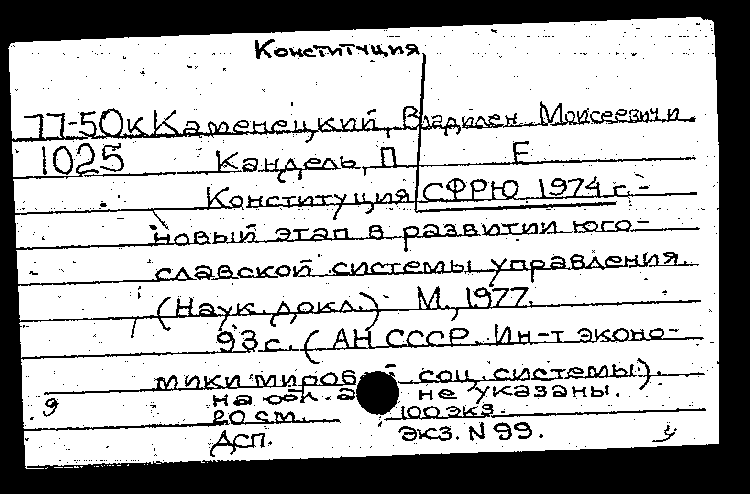 Конституция
77-50к Каменецкий, Владилен Моисеевич и
1025 Кандель, П Е
Конституция СФРЮ 1974 г. -
новый этап в развитии юго-
славской системы управления.
(Наук. докл.) М., 1977.
93 с. (АН СССР. Ин-т эконо-
мики мировой соц. системы).
на обл. не указаны.
9 20 см. 100 экз.
Дсп. экз. N 99.